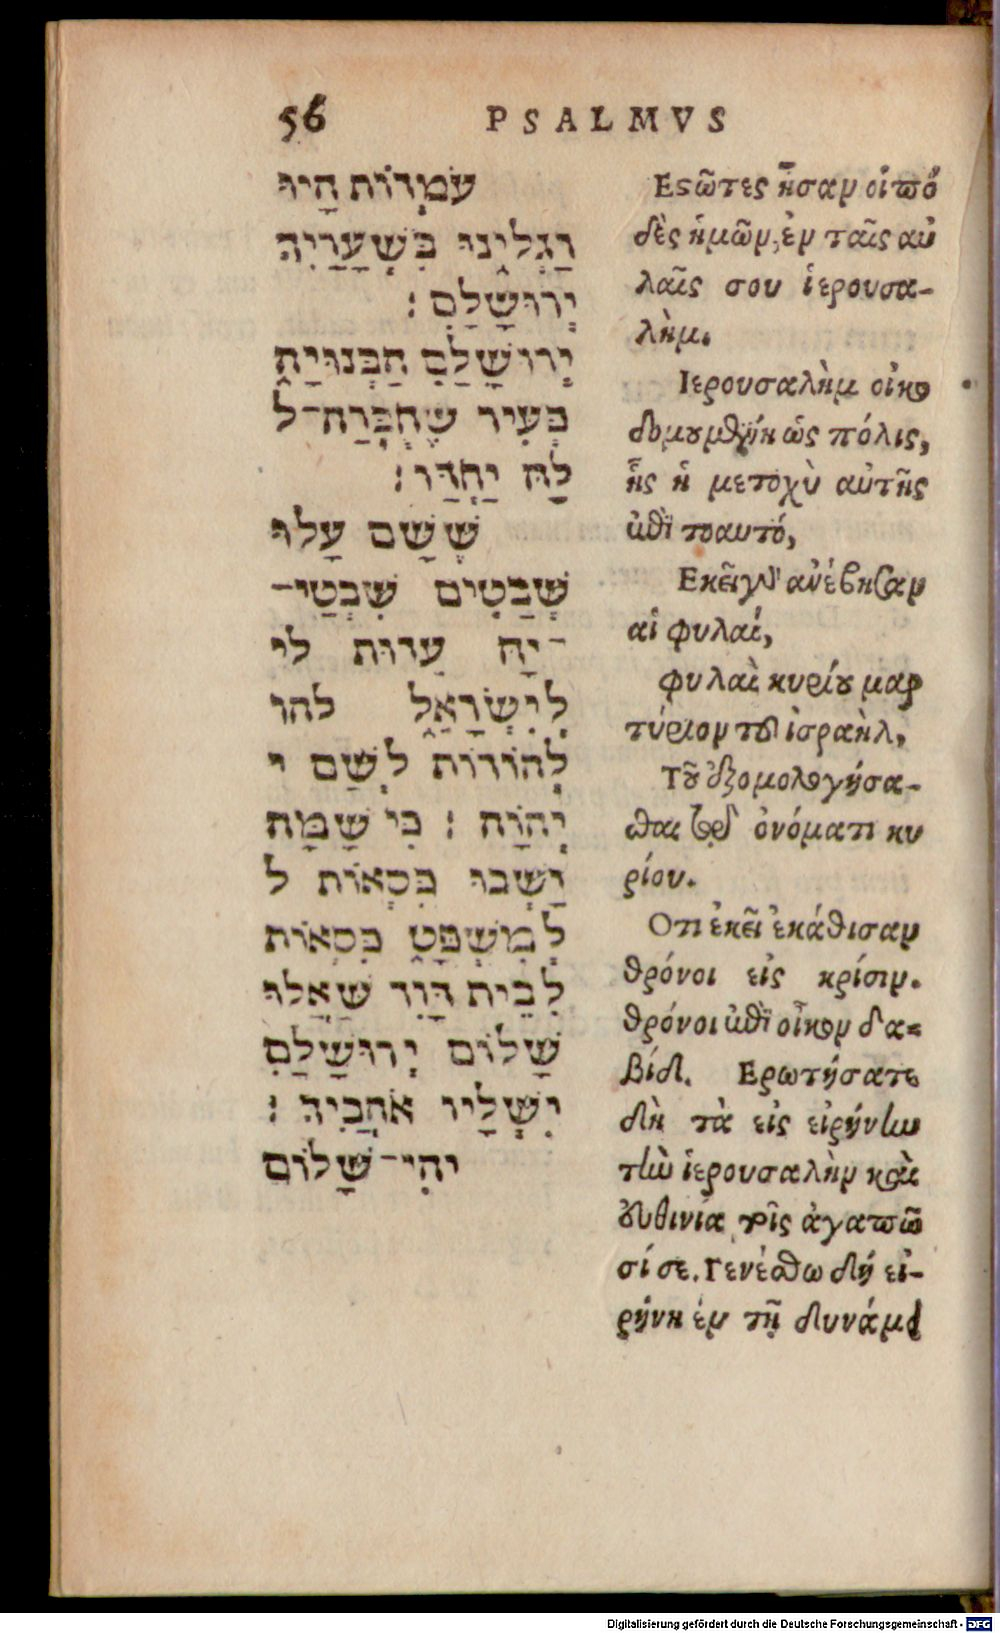 56 PSALMVS
עֹמְדוֹת הָיוּ
רַגְלֵינוּ בִּשְׁעָרַיִךְ
יְרוּשָׁלָםִ׃
יְרוּשָׁלַםִ הַבְּנוּיָה
כְּעִיר שֶׁחֻבְּרָה־ל
לָּהּ יַחְדָּו׃
שֶׁשָּׁם עָלוּ
שְׁבָטִים שִׁבְטֵי־
־יָהּ עֵדוּת לי
לְיִשְׂרָאֵל להו
לְהוֹדוֹת לְשֵׁם י
יְהוָה׃ כִּי שָׁמָּה
יָשְׁבוּ כִסְאוֹת ל
לְמִשְׁפָּט כִּסְאוֹת
לְבֵית דָּוִד שַׁאֲלוּ
שָׁלוֹם יְרוּשָׁלָםִ
יִשְׁלָיוּ אֹהֲבָיִךְ׃
יְהִי־שָׁלוֹם
Εϛῶτες ἦσαν οἱ πό
δες ἡμῶν, ἐν ταῖς αὐ
λαῖς σου ἱερουσα-
λὴμ.
Ιερουσαλὴμ οἰκο
δομουμένη ὡς πόλις,
ἧς ἡ μετοχὴ αὐτῆς
ἐπὶ τοαυτό,
Εκεῖ γὰρ ἀνέβησαν
αἱ φυλαί,
φυλαὶ κυρίου μαρ
τύριον τῷ ἰσραὴλ,
Τοῦ ἐξομολογήσα-
σθαι τῷ ὀνόματι κυ
ρίου.
Οτι ἐκεῖ ἐκάθισαν
θρόνοι εἰς κρίσιν.
θρόνοι ἐπὶ οἶκον δα=
βίδ. Ερωτήσατε
δὴ τὰ εἰς εἰρήνην
τὴν ἱερουσαλὴμ καὶ
εὐθηνία τοῖς ἀγαπῶ
σί σε. Γενέσθω δή εἰ-
ρήνη ἐν τῇ δυνάμει
Digitalisierung gefördert durch die Deutsche Forschungsgemeinschaft - DFG